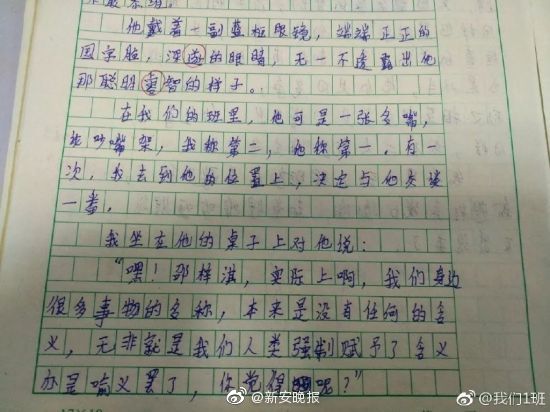 他戴着一副蓝框眼镜，端端正正的
国字脸，深邃的眼睛，无一不透露出他
那聪明睿智的样子。
在我们的班里，他可是一张多嘴，
吵嘴架，我称第二，他称第一。有一
次，我去到他的位置上，决定与他交谈
一番。
我坐在他的桌子上对他说：
“嘿！那样淇，实际上啊，我们身边
很多事物的名称，本来是没有任何的含
义，无非就是我们人类强制赋予了含义
亦是喻义罢了，你觉得呢？”
@新安晚报
@我们1班